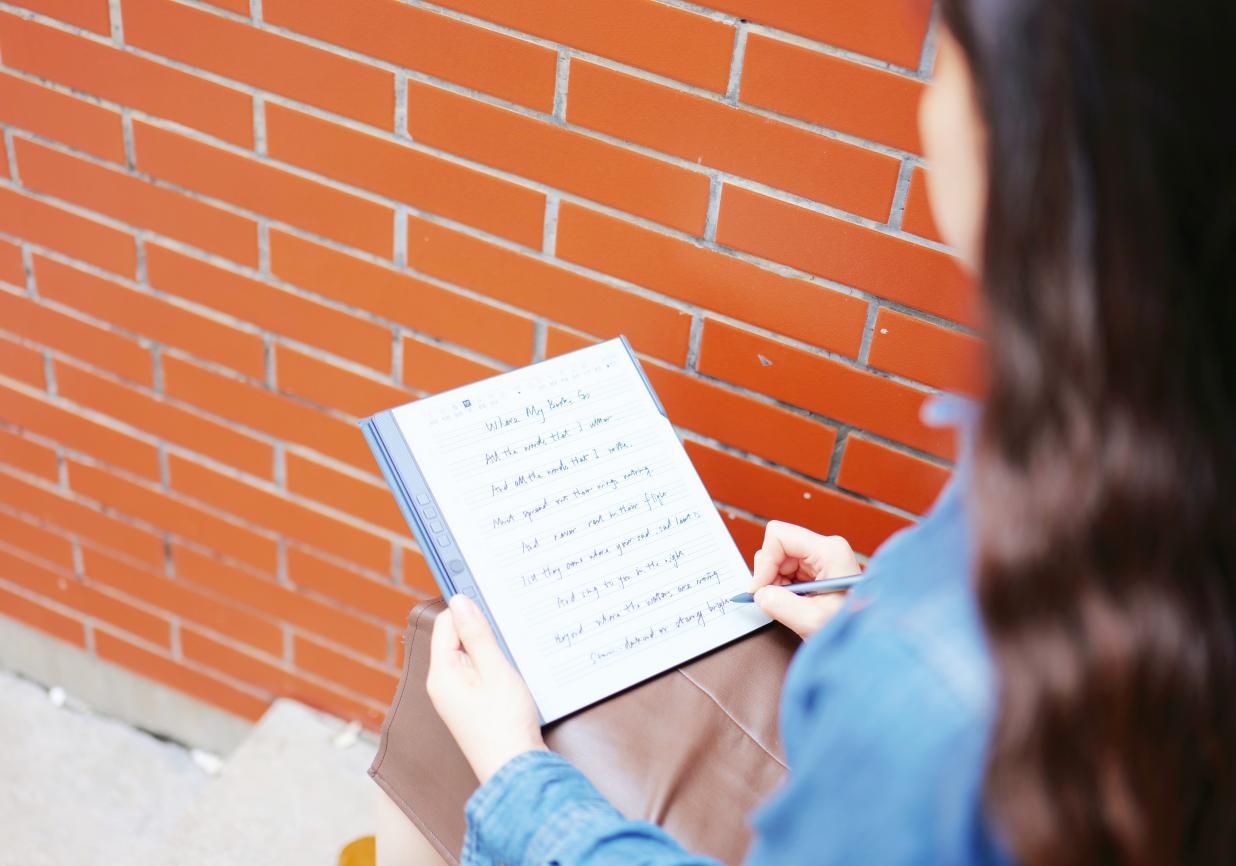 Where My Books Go
All the words that I utter
And all the words that I write.
Must spread out their wings
And never rest in their flight
Till they come where your sad, sad heart is
And sing to you in the night
Beyond where the waters are moving
Storm darkend or starry bright